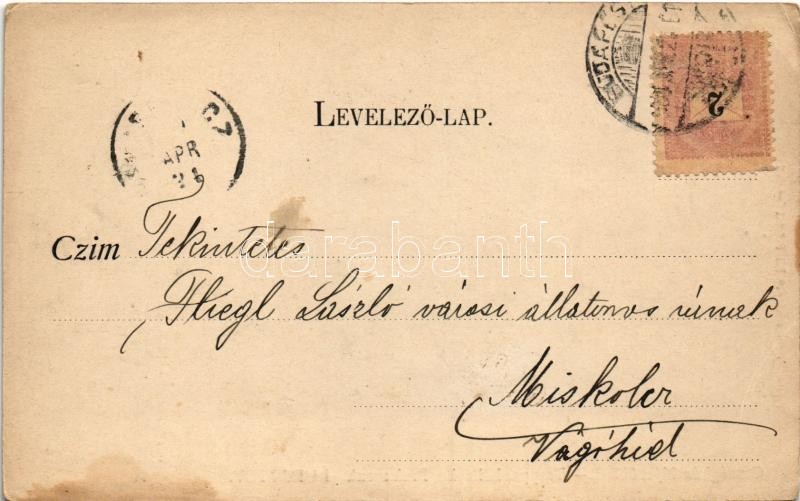 BUDAPEST
2
LEVELEZŐ-LAP.
APR
Czim Tekintetes
Fliegl László városi állatorvos úrnak
Miskolcz
Vágóhid
darabanth